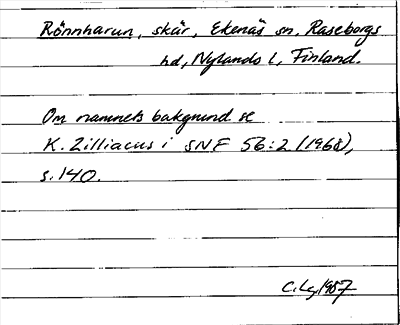 Rönnharun, skär, Ekenäs sn, Raseborgs
hd, Nylands l, Finland.
Om namnets bakgrund se
K. Zilliacus i SNF 56:2 (1968),
s. 140.
1987